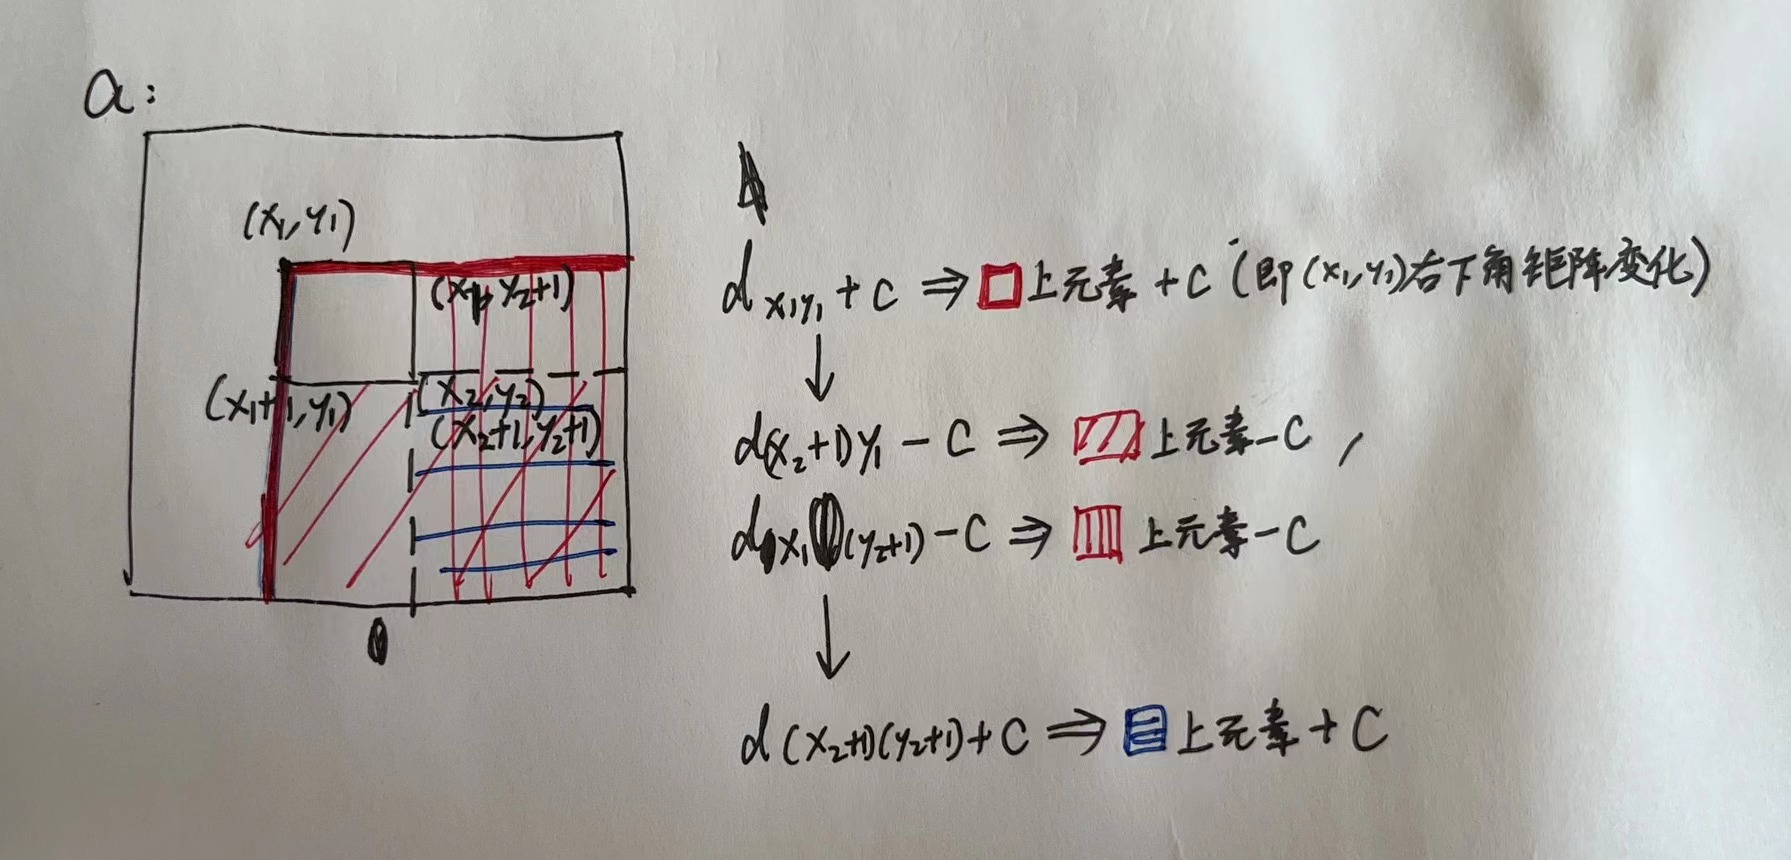 a:
(x₁,y₁)
(x₁, y₂+1)
(x₁+1,y₁)
(x₂,y₂)
(x₂+1,y₂+1)
d x₁y₁ + c ⇒ 上元素 + c (即(x₁,y₁)右下角矩阵变化)
d(x₂+1)y₁ - c ⇒ 上元素-c ,
d x₁(y₂+1) - c ⇒ 上元素-c
d (x₂+1)(y₂+1)+c ⇒ 上元素+c